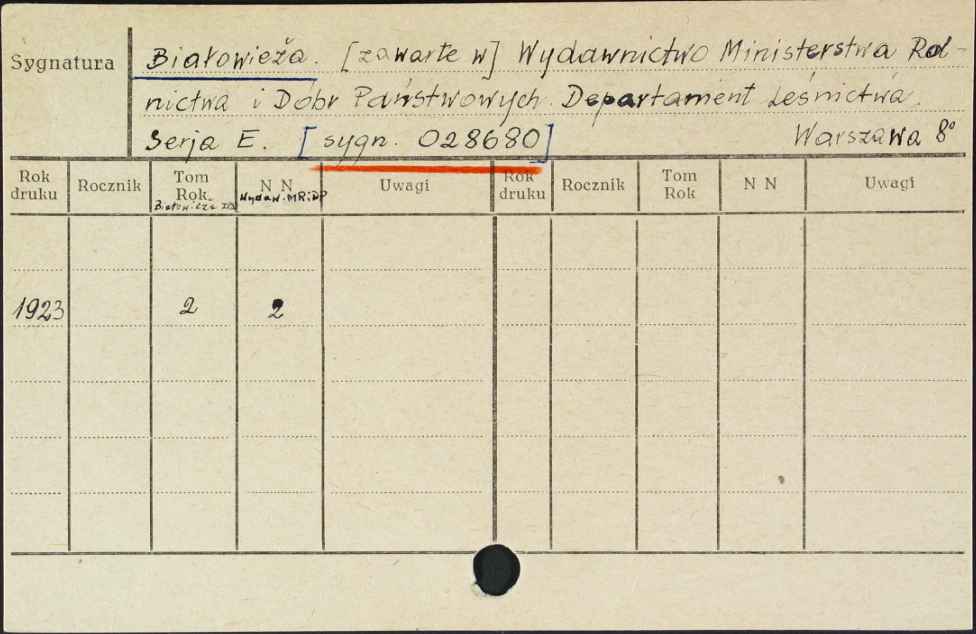 Sygnatura
Białowieża. [zawarte w] Wydawnictwo Ministerstwa Rol-
nictwa i Dóbr Państwowych. Departament Leśnictwa.
Serja E. [sygn. 028680] Warszawa 8°
Rok druku Rocznik Tom Rok N N Uwagi Rok druku Rocznik Tom Rok N N Uwagi
Białowieża Wydaw. MRiDP
1923 2 2